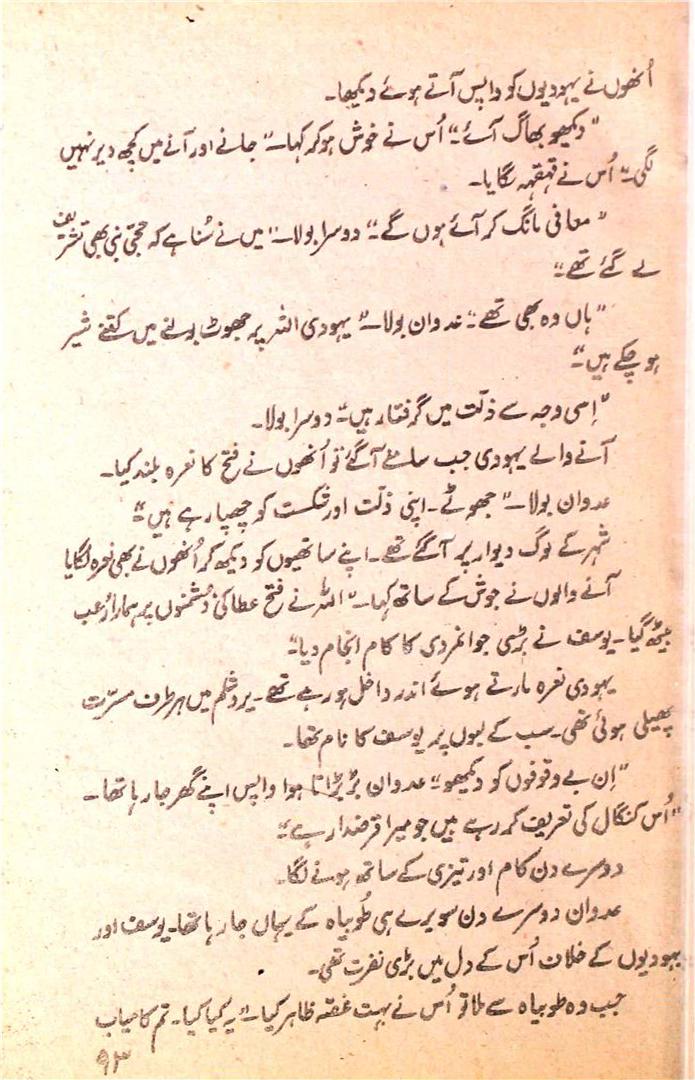 اُنھوں نے یہودیوں کو واپس آتے ہوئے دیکھا۔
”دیکھو بھاگ آئے“ اُس نے خوش ہوکر کہا۔ ”جانے اور آنے میں کچھ دیر نہیں
لگی۔“ اُس نے قہقہہ لگایا۔
”معافی مانگ کر آئے ہوں گے“ دوسرا بولا۔ ”میں نے سُنا ہے کہ حجّی نبی بھی تشریف
لے گئے تھے“
”ہاں وہ بھی تھے“ عدوان بولا۔ ”یہودی اللہ پر جھوٹ بولنے میں کتنے شیر
ہو چکے ہیں“
”اِسی وجہ سے ذلّت میں گرفتار ہیں“ دوسرا بولا۔
آنے والے یہودی جب سامنے آگئے تو اُنھوں نے فتح کا نعرہ بلند کیا۔
عدوان بولا۔ ”جھوٹے۔ اپنی ذلّت اور شکست کو چھپا رہے ہیں“
شہر کے لوگ دیوار پر آگئے تھے۔ اپنے ساتھیوں کو دیکھ کر اُنھوں نے بھی نعرہ لگایا
آنے والوں نے جوش کے ساتھ کہا۔ ”اللہ نے فتح عطا کی دُشمنوں پر ہمارا رُعب
بیٹھ گیا۔ یوسف نے بڑی جوانمردی کا کام انجام دیا“
یہودی نعرہ مارتے ہوئے اندر داخل ہو رہے تھے۔ یروشلم میں ہر طرف مسرّت
پھیلی ہوئی تھی۔ سب کے لبوں پر یوسف کا نام تھا۔
”اِن بے وقوفوں کو دیکھو“ عدوان بڑبڑاتا ہوا واپس اپنے گھر جا رہا تھا۔
”اُس کنگال کی تعریف کر رہے ہیں جو میرا قرضدار ہے“
دوسرے دن کام اور تیزی کے ساتھ ہونے لگا۔
عدوان دوسرے دن سویرے ہی طُوبیاہ کے یہاں جا رہا تھا۔ یوسف اور
یہودیوں کے خلاف اُس کے دل میں بڑی نفرت تھی۔
جب وہ طوبیاہ سے ملا تو اُس نے بہت غصّہ ظاہر کیا۔ ”یہ کیا کیا۔ تم کامیاب
۹۳